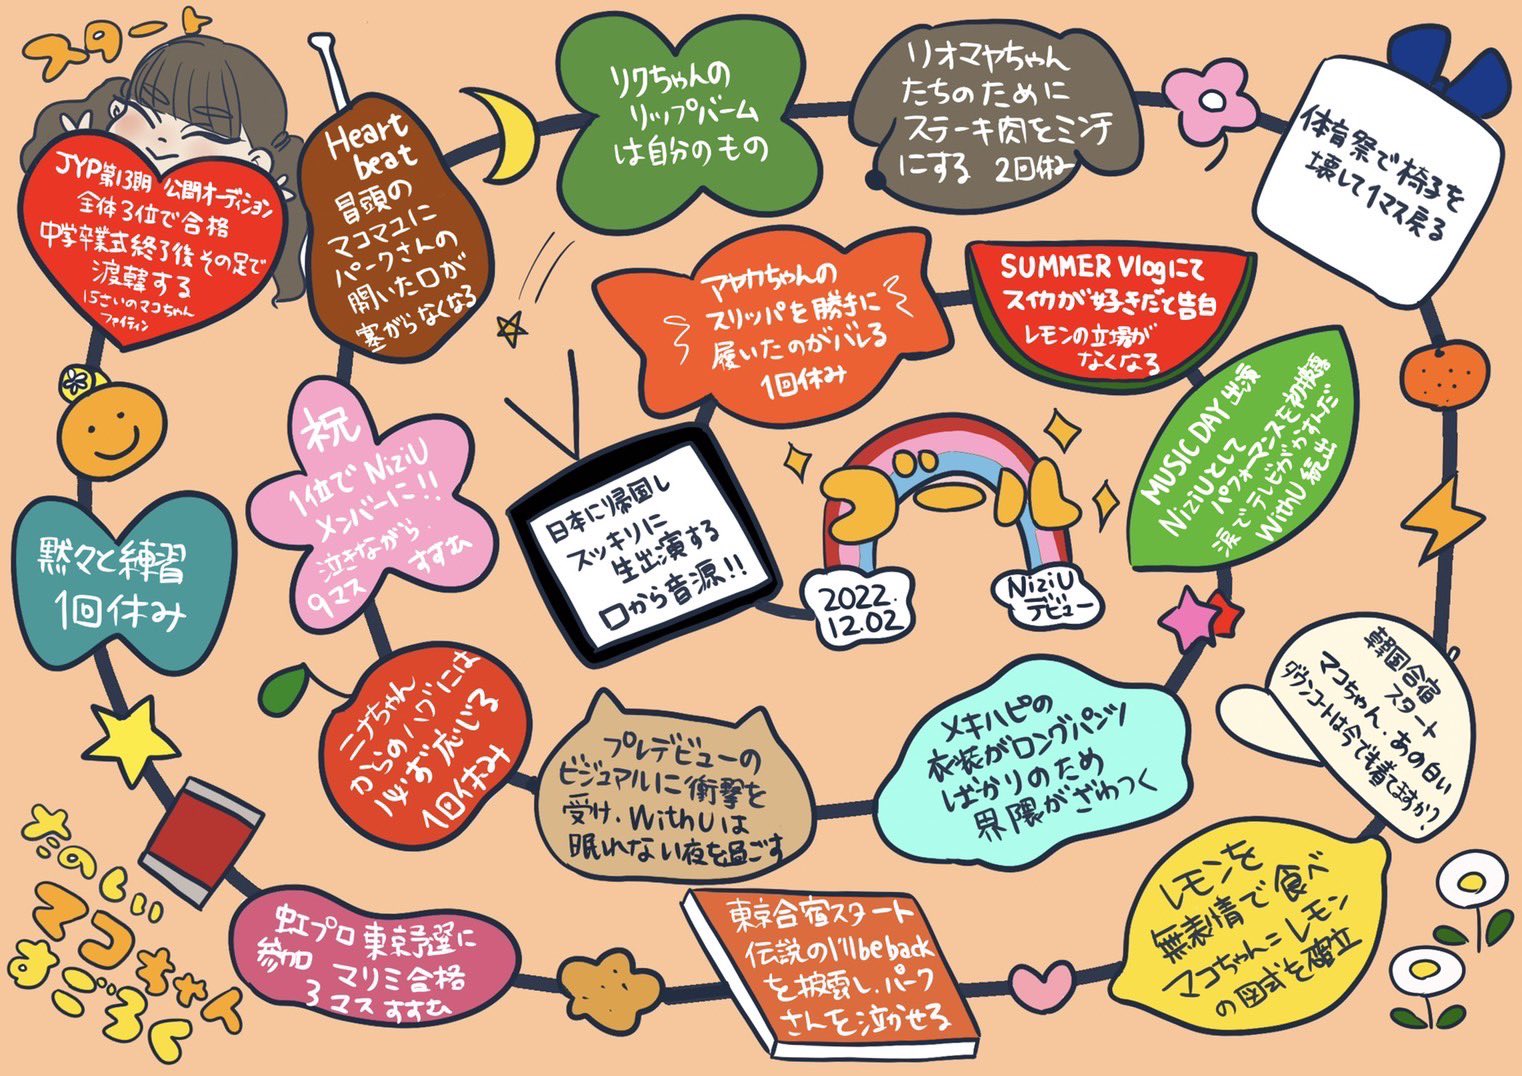 スタート
JYP第13期 公開オーディション
全体3位で合格
中学卒業式終了後その足で
渡韓する
15さいのマコちゃん
ファイティン
黙々と練習
1回休み
虹プロ東京予選に
参加 マリミ合格
3マスすすむ
東京合宿スタート
伝説のI'll be back
を披露し、パーク
さんを泣かせる
レモンを
無表情で食べ
マコちゃん=レモン
の図式を確立
韓国合宿
スタート
マコちゃん、あの白い
ダウンコートは今でも着てますか?
体育祭で椅子を
壊して1マス戻る
リオマヤちゃん
たちのために
ステーキ肉をミンチ
にする 2回休み
リクちゃんの
リップバーム
は自分のもの
Heart
beat
冒頭の
マコマユに
パークさんの
開いた口が
塞がらなくなる
祝
1位でNiziU
メンバーに!!
泣きながら
9マス すすむ
ニナちゃん
からのハグには
必ず応じる
1回休み
プレデビューの
ビジュアルに衝撃を
受け、WithUは
眠れない夜を過ごす
メキハピの
衣装がロングパンツ
ばかりのため
界隈がざわつく
MUSIC DAY 出演
NiziUとして
パフォーマンスを初披露
涙でテレビがかすんだ
WithU 続出
SUMMER Vlogにて
スイカが好きだと告白
レモンの立場が
なくなる
アヤカちゃんの
スリッパを勝手に
履いたのがバレる
1回休み
日本に帰国し
スッキリに
生出演する
口から音源!!
2022.
12.02
NiziU
デビュー
たのしい
マコちゃん
すごろく